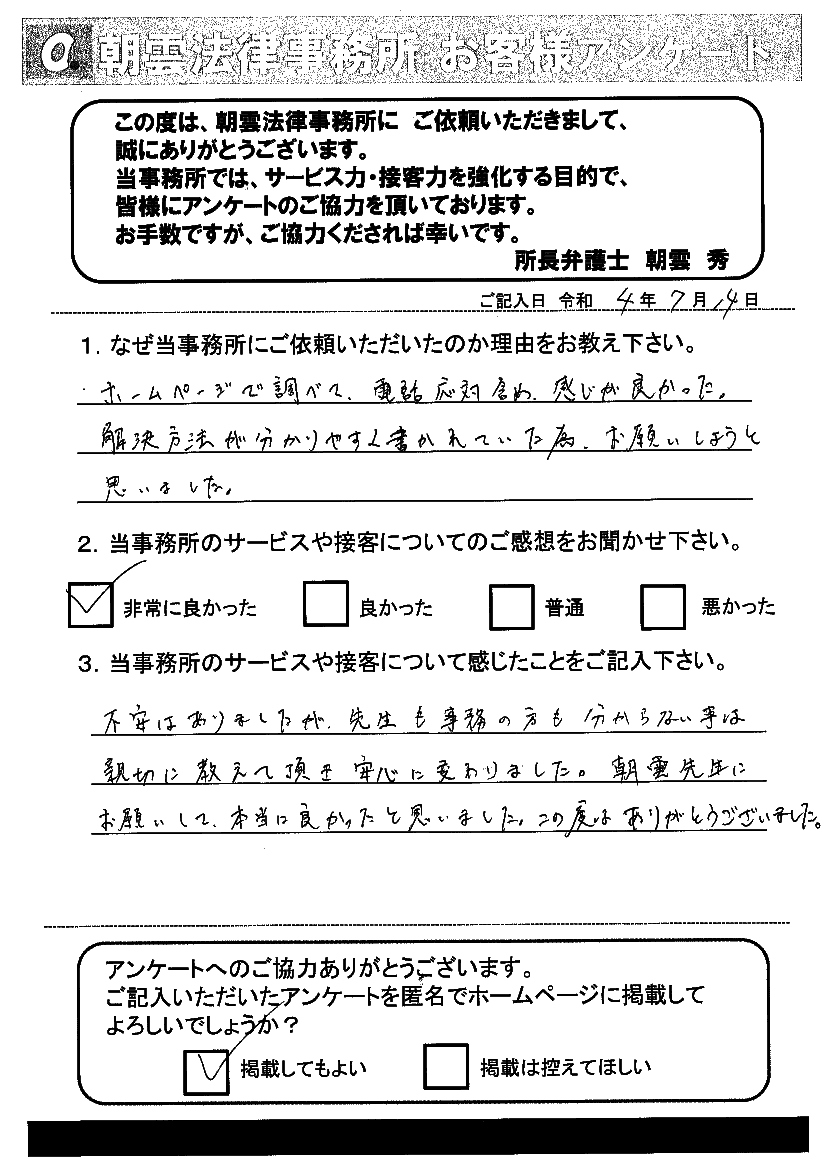 朝雲法律事務所 お客様アンケート
この度は、朝雲法律事務所に ご依頼いただきまして、
誠にありがとうございます。
当事務所では、サービス力・接客力を強化する目的で、
皆様にアンケートのご協力を頂いております。
お手数ですが、ご協力くだされば幸いです。
所長弁護士 朝雲 秀
ご記入日 令和 4年 7月14日
1. なぜ当事務所にご依頼いただいたのか理由をお教え下さい。
・ホームページで調べて、電話応対含め、感じが良かった。
解決方法が分かりやすく書かれていた為、お願いしようと
思いました。
2. 当事務所のサービスや接客についてのご感想をお聞かせ下さい。
非常に良かった 良かった 普通 悪かった
3. 当事務所のサービスや接客について感じたことをご記入下さい。
不安はありましたが、先生も事務の方も分からない事は
親切に教えて頂き安心に変わりました。朝雲先生に
お願いして、本当に良かったと思いました。この度はありがとうございました。
アンケートへのご協力ありがとうございます。
ご記入いただいたアンケートを匿名でホームページに掲載して
よろしいでしょうか？
掲載してもよい 掲載は控えてほしい